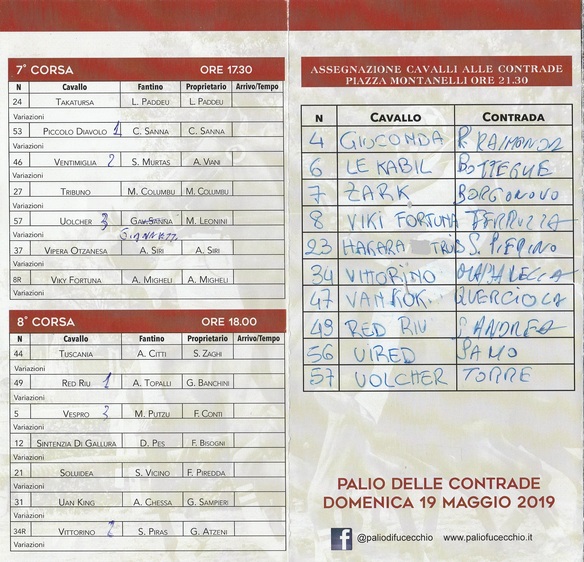 7ª CORSA ORE 17.30
N Cavallo Fantino Proprietario Arrivo/Tempo
24 TAKATURSA L. PADDEU L. PADDEU
Variazioni
53 PICCOLO DIAVOLO 1 C. SANNA C. SANNA
Variazioni
46 VENTIMIGLIA 2 S. MURTAS A. VIANI
Variazioni
27 TRIBUNO M. COLUMBU M. COLUMBU
Variazioni
57 UOLCHER 3 GAV.SANNA M. LEONINI
Variazioni
37 VIPERA OTZANESA A. SIRI A. SIRI
Variazioni
8R VIKY FORTUNA A. MIGHELI A. MIGHELI
Variazioni
8ª CORSA ORE 18.00
N Cavallo Fantino Proprietario Arrivo/Tempo
44 TUSCANIA A. CITTI S. ZAGHI
Variazioni
49 RED RIU 1 A. TOPALLI G. BANCHINI
Variazioni
5 VESPRO 3 M. PUTZU F. CONTI
Variazioni
12 SINTENZIA DI GALLURA D. PES F. BISOGNI
Variazioni
21 SOLUIDEA S. VICINO F. PIREDDA
Variazioni
31 UAN KING A. CHESSA G. SAMPIERI
Variazioni
34R VITTORINO 2 S. PIRAS G. ATZENI
Variazioni
ASSEGNAZIONE CAVALLI ALLE CONTRADE
PIAZZA MONTANELLI ORE 21.30
N CAVALLO CONTRADA
4 GIOCONDA P. RAIMONDA
6 LE KABIL BOTTEGHE
7 ZARK BORGONOVO
8 VIKI FORTUNA FERRUZZA
23 HAKARA TRIBS S. PIERINO
34 VITTORINO MASSARELLA
47 VANKOK QUERCIOLA
49 RED RIU S. ANDREA
56 UIRED SAMO
57 VOLCHER TORRE
PALIO DELLE CONTRADE
DOMENICA 19 MAGGIO 2019
f @paliodifucecchio www.paliofucecchio.it